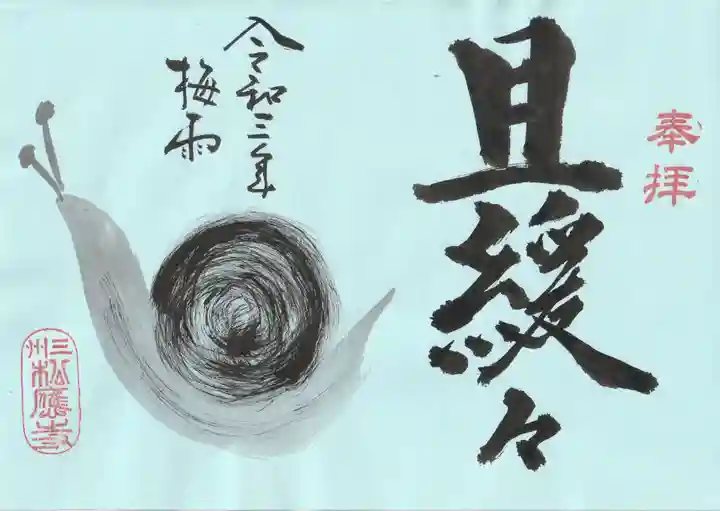 奉拝
且緩々
令和三年
梅雨
三州
松應寺